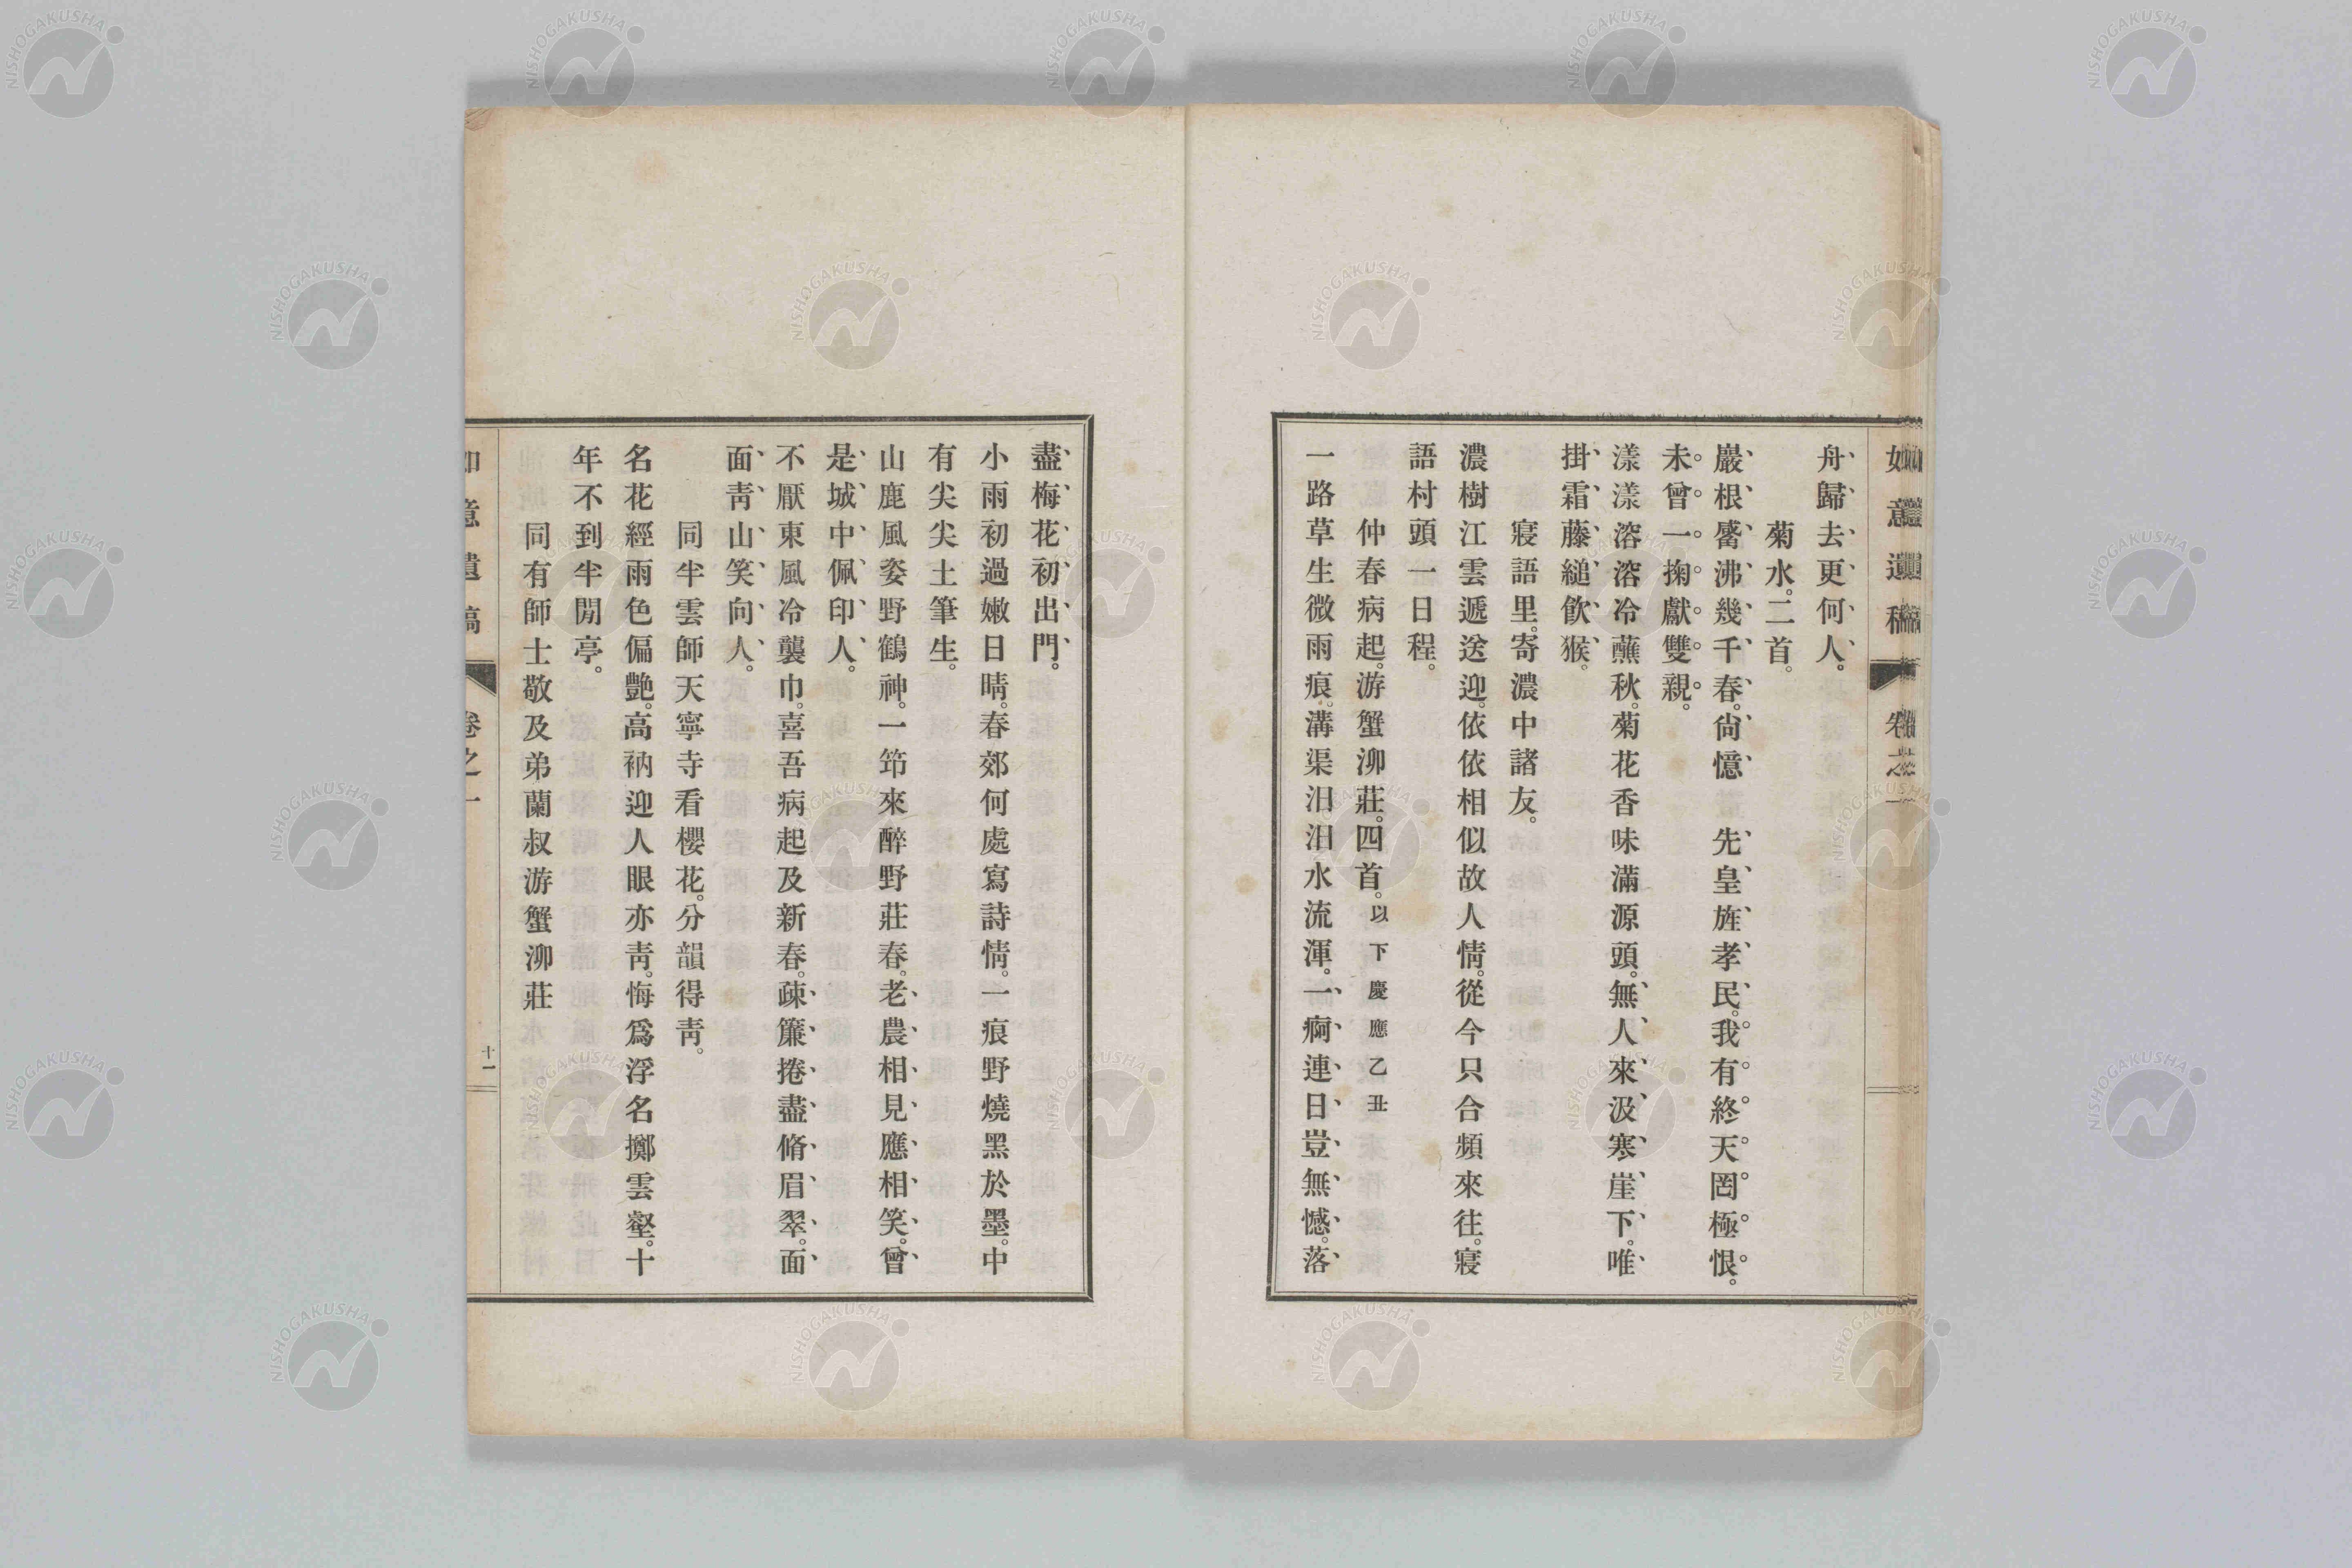 如意遺稿 卷之一
舟歸去更何人。
菊水。二首。
巖根觱沸幾千春。尙憶 先皇旌孝民。我有終天罔極恨。
未曾一掬獻雙親。
漾漾溶溶冷蘸秋。菊花香味滿源頭。無人來汲寒崖下。唯
掛霜藤縋飮猴。
寢語里。寄濃中諸友。
濃樹江雲遞送迎。依依相似故人情。從今只合頻來往。寢
語村頭一日程。
仲春病起。游蟹泖莊。四首。以下慶應乙丑
一路草生微雨痕。溝渠汨汨水流渾。一痾連日豈無憾。落
盡梅花初出門。
小雨初過嫩日晴。春郊何處寫詩情。一痕野燒黑於墨。中
有尖尖土筆生。
山鹿風姿野鶴神。一笻來醉野莊春。老農相見應相笑。曾
是城中佩印人。
不厭東風冷襲巾。喜吾病起及新春。疎簾捲盡脩眉翠。面
面靑山笑向人。
同半雲師天寧寺看櫻花。分韻得靑。
名花經雨色偏艷。高衲迎人眼亦靑。悔爲浮名擲雲壑。十
年不到半閒亭。
同有師士敬及弟蘭叔游蟹泖莊
如意遺稿 卷之一 十一
NISHOGAKUSHA